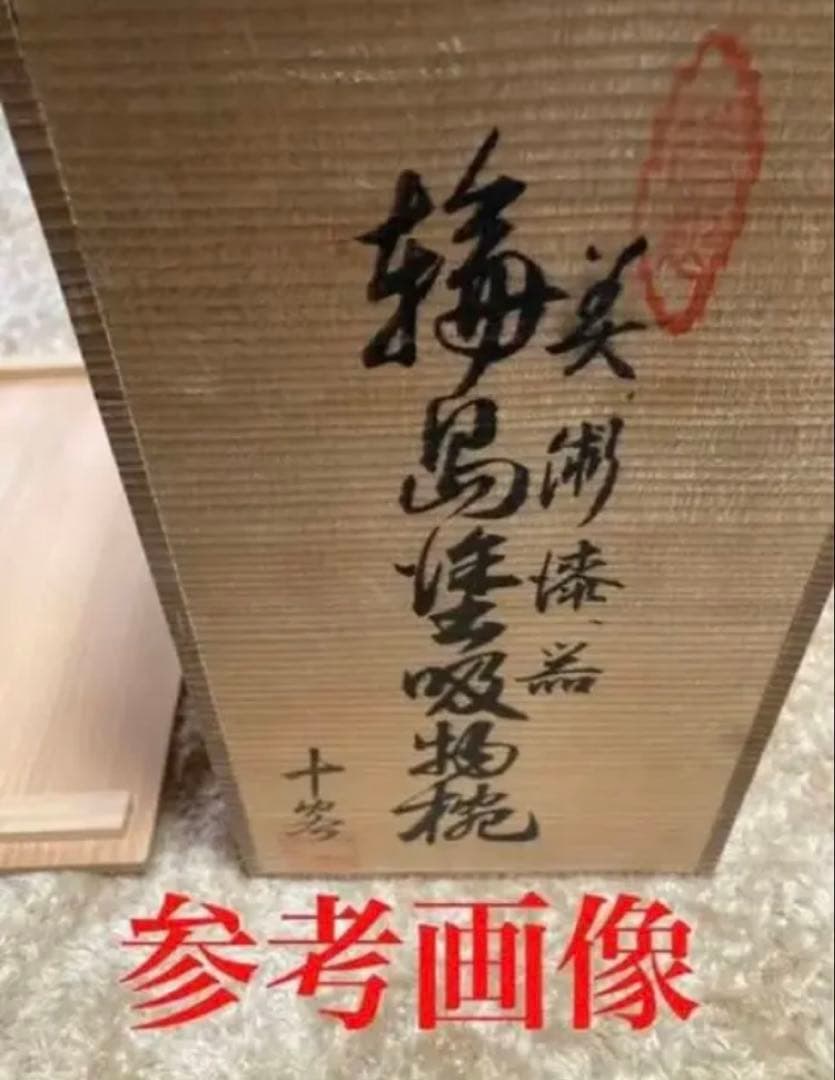 美術漆器
輪島塗吸物椀
十客
参考画像